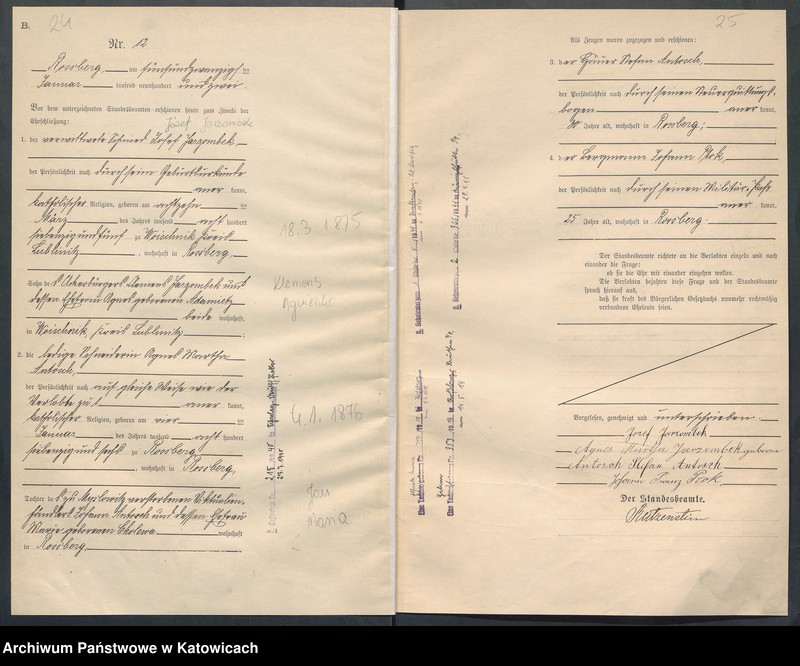 B.
24
Nr. 12
Rossberg, am fünfundzwanzigsten
Januar tausend neunhundert und zwei.
Vor dem unterzeichneten Standesbeamten erschienen heute zum Zwecke der
Eheschließung:
Józef Jarzombek
1. der verwittwete Schmied Josef Jarzombek,
der Persönlichkeit nach durch seine Geburtsurkunde
aner kannt,
katholischer Religion, geboren am achtzehnten
März des Jahres tausend acht hundert
siebenzig und fünf zu Woischnik Kreis
Lublinitz, wohnhaft in Rossberg.
18.3.1875
Sohn des Ackerbürgers Klemens Jarzombek und
dessen Ehefrau Agnes geborenen Adamietz
beide wohnhaft
in Woischnik, Kreis Lublinitz;
Klemens
Agnieszka
2. die ledige Schneiderin Agnes Martha
Antosch,
der Persönlichkeit nach auf gleiche Weise wie der
Verlobte zu 1 aner kannt,
katholischer Religion, geboren am vierten
Januar des Jahres tausend acht hundert
siebenzig und sechs zu Rossberg
, wohnhaft in Rossberg,
4.1.1876
Tochter des zu Myslowitz verstorbenen Viktualien-
händlers Johann Antosch und dessen Ehefrau
Marie geborenen Cholewa wohnhaft
in Rossberg.
Jan
Maria
25
Als Zeugen waren zugezogen und erschienen:
3. der Häuer Stefan Antosch,
der Persönlichkeit nach durch seinen Steuerquittungs-
bogen aner kannt,
30 Jahre alt, wohnhaft in Rossberg;
4. der Bergmann Johann Ptok,
der Persönlichkeit nach durch seinen Militär-Paß
aner kannt,
25 Jahre alt, wohnhaft in Rossberg.
Der Standesbeamte richtete an die Verlobten einzeln und nach
einander die Frage:
ob sie die Ehe mit einander eingehen wollen.
Die Verlobten bejahten diese Frage und der Standesbeamte
sprach hierauf aus,
daß sie kraft des Bürgerlichen Gesetzbuchs nunmehr rechtmäßig
verbundene Eheleute seien.
Vorgelesen, genehmigt und unterschrieben.
Josef Jarzombek
Agnes Martha Jarzombek geborene
Antosch Stefan Antosch
Johann Franz Ptok
Der Standesbeamte.
Archiwum Państwowe w Katowicach